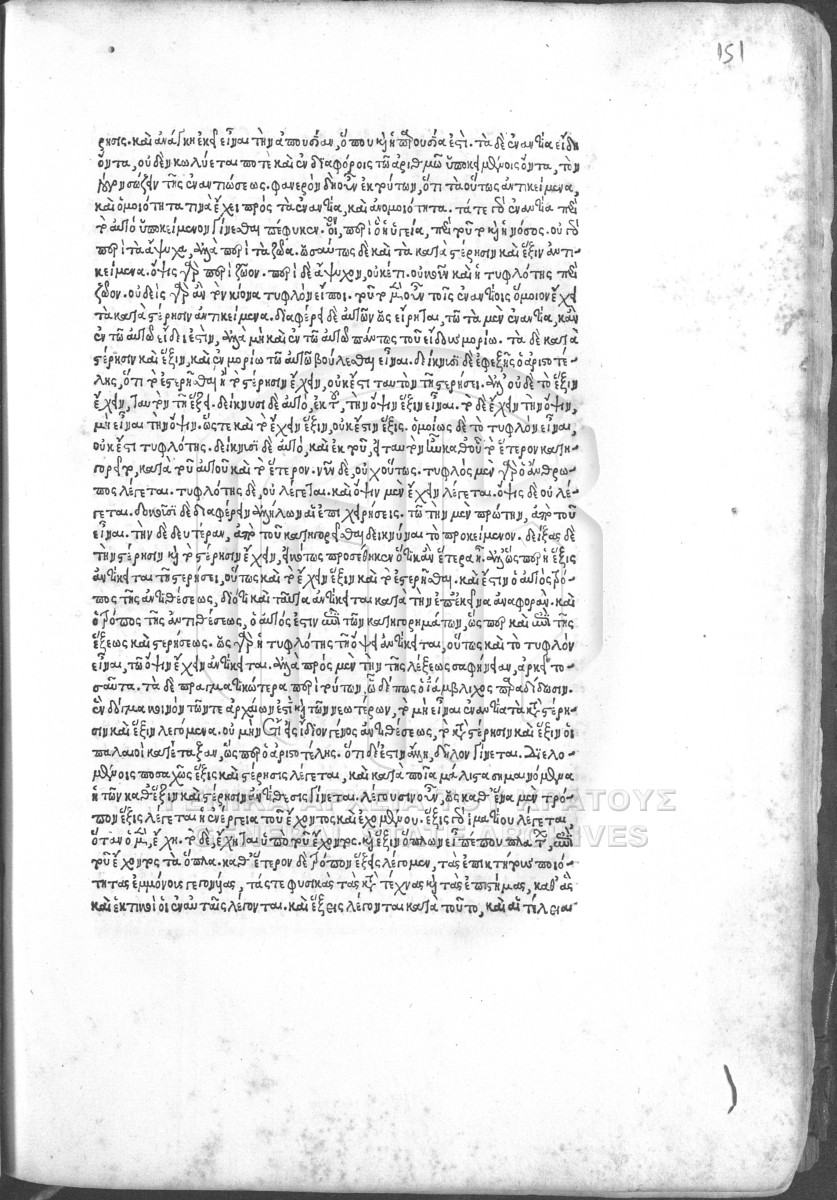 151
ρησις. καὶ ἀνάγκη ἐκεῖ εἶναι τὴν ἀπουσίαν, ὅπου καὶ ἡ παρουσία ἐστί. τὰ δὲ ἐναντία εἴδη
ὄντα, οὐδὲν κωλύεται ποτὲ καὶ ἐν διαφόροις τῶ ἀριθμῶ ὑποκειμένοις ὄντα, τὸν
λόγον σώζειν τῆς ἐναντιώσεως. φανερὸν δὴ οὖν ἐκ τούτων, ὅτι τὰ οὕτως ἀντικείμενα,
καὶ ὁμοιότητα τινὰ ἔχει πρὸς τὰ ἐναντία, καὶ ἀνομοιότητα. τά τε γὰρ ἐναντία περὶ
τὸ αὐτὸ ὑποκείμενον γίνεσθαι πέφυκεν. οἷον, περὶ ὃ ἡ ὑγεία, περὶ τοῦτο καὶ ἡ νόσος. οὐ γὰρ
περὶ τὰ ἄψυχα, ἀλλὰ περὶ τὰ ζῶα. ὡσαύτως δὲ καὶ τὰ κατὰ στέρησιν καὶ ἕξιν ἀντι-
κείμενα. ὄψις γὰρ περὶ ζῶον. περὶ δὲ ἄψυχον, οὐκέτι. οὐκοῦν καὶ ἡ τυφλότης περὶ
ζῶον. οὐδεὶς γὰρ ἂν τὸν κίονα τυφλὸν εἴποι. τοῦτο μὲν οὖν τοῖς ἐναντίοις ὅμοιον ἔχει
τὰ κατὰ στέρησιν ἀντικείμενα. διαφέρει δὲ αὐτῶν ὡς εἴρηται, τῶ τὰ μὲν ἐναντία, κἂν
ἐν τῶ αὐτῶ εἴδει ἐστὶν, ἀλλὰ μὴ καὶ ἐν τῶ αὐτῶ πάντως τοῦ εἴδους μορίω. τὰ δὲ κατὰ
στέρησιν καὶ ἕξιν, καὶ ἐν μορίω τῶ αὐτῶ βούλεσθαι εἶναι. δείκνυσι δὲ ἐφεξῆς ὁ ἀριστοτέ-
λης, ὅτι τὸ ἐστερῆσθαι ἢ τὸ στέρησιν ἔχειν, οὐκ ἔστι ταυτὸν τῆ στερήσει. ἀλλ' οὐδὲ τὸ ἕξιν
ἔχειν, ταυτὸν τῆ ἕξει. δείκνυσι δὲ αὐτὸ, ἐκ τοῦ, τὴν ὄψιν ἕξιν εἶναι. τὸ δὲ ἔχειν τὴν ὄψιν,
μὴ εἶναι τὴν ὄψιν. ὥστε καὶ τὸ ἔχειν ἕξιν, οὐκ ἔστιν ἕξις. ὁμοίως δὲ τὸ τυφλὸν εἶναι,
οὐκ ἔστι τυφλότης. δείκνυσι δὲ αὐτὸ, καὶ ἐκ τοῦ, εἰ ταυτὸν ἦν καθ' οὗ τὸ ἕτερον κατη-
γορεῖτο, κατὰ τοῦ αὐτοῦ καὶ τὸ ἕτερον. νῦν δὲ, οὐχ οὕτως. τυφλὸς μὲν γὰρ ὁ ἄνθρω-
πος λέγεται. τυφλότης δὲ, οὐ λέγεται. καὶ ὄψιν μὲν ἔχειν λέγεται. ὄψις δὲ οὐ λέ-
γεται. δοκοῦσι δὲ διαφέρειν ἀλλήλων αἱ ἐπιχειρήσεις. τῶ τὴν μὲν πρώτην, ἀπὸ τοῦ
εἶναι. τὴν δὲ δευτέραν, ἀπὸ τοῦ κατηγορεῖσθαι δεικνύναι τὸ προκείμενον. δείξας δὲ
τὴν στέρησιν καὶ τὸ στέρησιν ἔχειν, εἰκότως προσέθηκεν ὅτι κἂν ἕτερα ἦ, ἀλλ' ὥσπερ ἡ ἕξις
ἀντίκειται τῆ στερήσει, οὕτως καὶ τὸ ἔχειν ἕξιν καὶ τὸ ἐστερῆσθαι. καὶ ἔστιν ὁ αὐτὸς τρό-
πος τῆς ἀντιθέσεως, διότι καὶ ταῦτα ἀντίκειται κατὰ τὴν ἐπ' ἐκεῖνα ἀναφοράν. καὶ
ὁ τρόπος τῆς ἀντιθέσεως, ὁ αὐτός ἐστιν ἐπὶ τῶν κατηγορημάτων, ὥσπερ καὶ ἐπὶ τῆς
ἕξεως καὶ στερήσεως. ὡς γὰρ ἡ τυφλότης τῆ ὄψει ἀντίκειται, οὕτως καὶ τὸ τυφλὸν
εἶναι, τῶ ὄψιν ἔχειν ἀντίκειται. ἀλλὰ πρὸς μὲν τὴν τῆς λέξεως σαφήνειαν, ἀρκεῖ το-
σαῦτα. τὰ δὲ πραγματικώτερα περὶ τούτων, ὧδέ πως ὁ ἰάμβλιχος παραδίδωσιν.
ἓν δόγμα κοινὸν τῶν τε ἀρχαίων ἐστὶ καὶ τῶν νεωτέρων, τὸ μὴ εἶναι ἐναντία τὰ κατὰ στέρη-
σιν καὶ ἕξιν λεγόμενα. οὐ μὴν εἰς ἴδιον γένος ἀντιθέσεως, τὸ κατὰ στέρησιν καὶ ἕξιν οἱ
παλαιοὶ κατέταξαν, ὥσπερ ὁ ἀριστοτέλης. ὅτι δέ ἐστιν ἄλλη, δῆλον γίνεται. διελο-
μένοις ποσαχῶς ἕξις καὶ στέρησις λέγεται, καὶ κατὰ ποῖα μάλιστα σημαινόμενα
ἡ τῶν καθ' ἕξιν καὶ στέρησιν ἀντίθεσις γίνεται. λέγουσιν οὖν, ὡς καθ' ἕνα μὲν τρό-
πον ἕξις λέγεται ἡ ἐνέργεια τοῦ ἔχοντος καὶ ἐχομένου. ἕξις γὰρ ἱματίου λέγεται,
ὅταν ὁ μὲν, ἔχη. τὸ δὲ, ἔχηται ὑπὸ τοῦ ἔχοντος. καὶ ἕξιν ὅπλων εἶπέ που πλάτων, ἐπὶ
τοῦ ἔχοντος τὰ ὅπλα. καθ' ἕτερον δὲ τρόπον ἕξεις λέγομεν, τὰς ἐπικτήτους ποιό-
τητας ἐμμόνους γεγονυίας, τάς τε φυσικὰς τὰς κατὰ τέχνας καὶ τὰς ἐπιστήμας, καθ' ἃς
καὶ ἑκτικοὶ οἱ ἐν αὐταῖς λέγονται. καὶ ἕξεις λέγονται κατὰ τοῦτο, καὶ αἱ τέλειαι
ΓΕΝΙΚΑ ΑΡΧΕΙΑ ΤΟΥ ΚΡΑΤΟΥΣ
GENERAL STATE ARCHIVES